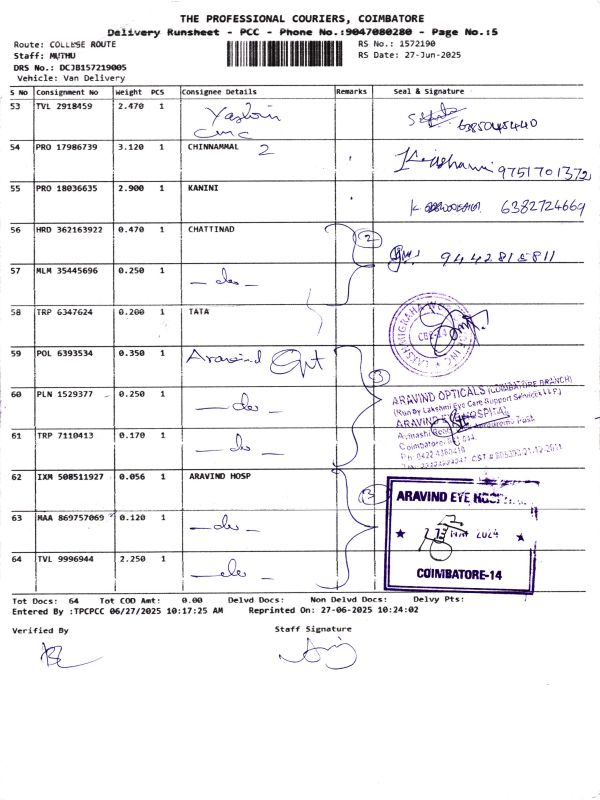 THE PROFESSIONAL COURIERS, COIMBATORE
Delivery Runsheet - PCC - Phone No.:9047080280 - Page No.:5
Route: COLLEGE ROUTE RS No.: 1572190
Staff: MUTHU RS Date: 27-Jun-2025
DRS No.: DCJB157219005
Vehicle: Van Delivery
S No Consignment No Weight PCS Consignee Details Remarks Seal & Signature
53 TVL 2918459 2.470 1 6385045440
54 PRO 17986739 3.120 1 CHINNAMMAL 2 9751701372
55 PRO 18036635 2.900 1 KANINI 6382724669
56 HRD 362163922 0.470 1 CHATTINAD 2 9442815811
57 MLM 35445696 0.250 1 - do -
58 TRP 6347624 0.200 1 TATA
59 POL 6393534 0.350 1 Aravind Opt 3
60 PLN 1529377 0.250 1 - do -
ARAVIND OPTICALS (COIMBATORE BRANCH)
(Run By Lakshmi Eye Care Support Services LLP)
ARAVIND EYE HOSPITAL
61 TRP 7110413 0.170 1 - do -
62 IXM 508511927 0.056 1 ARAVIND HOSP 3
ARAVIND EYE HOSPITAL
63 MAA 869757069 0.120 1 - do -
2024
64 TVL 9996944 2.250 1 - do -
COIMBATORE-14
Tot Docs: 64 Tot COD Amt: 0.00 Delvd Docs: Non Delvd Docs: Delvy Pts:
Entered By :TPCPCC 06/27/2025 10:17:25 AM Reprinted On: 27-06-2025 10:24:02
Verified By Staff Signature